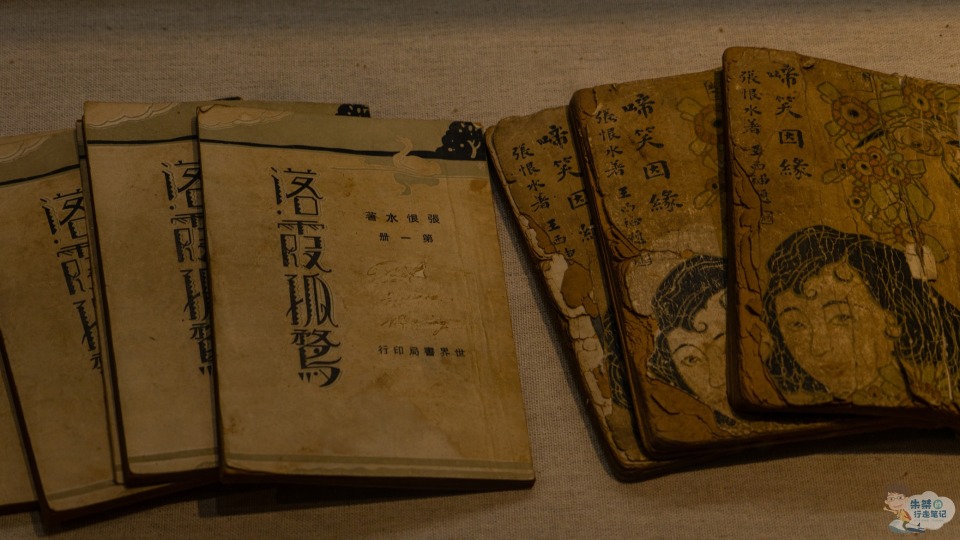 落霞
落霞孤鶩
落霞孤鶩
張恨水著
第一冊
世界書局印行
啼笑因
張恨水著
啼笑因緣
張恨水著
啼笑因緣
張恨水著
行走笔记